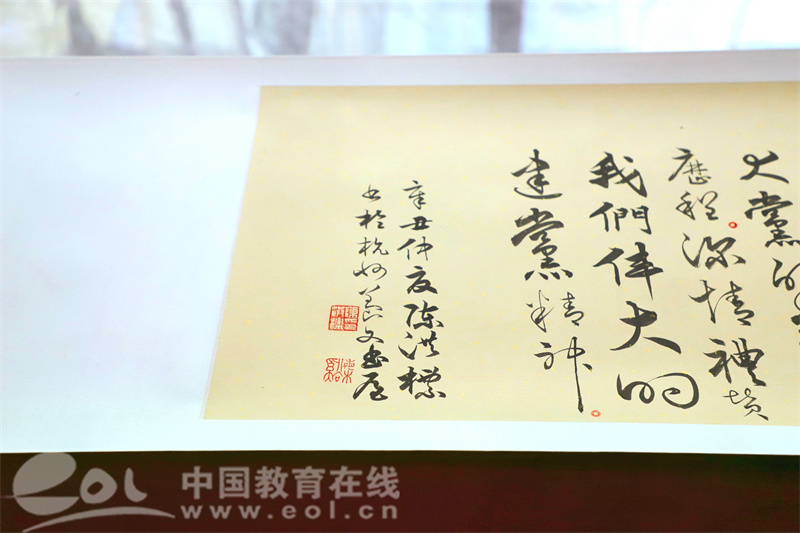 大黨的
歷程。深情禮贊
我們偉大的
建黨精神。
辛丑仲夏陳洪標
書於杭州文書屋
eol 中国教育在线
www.eol.cn